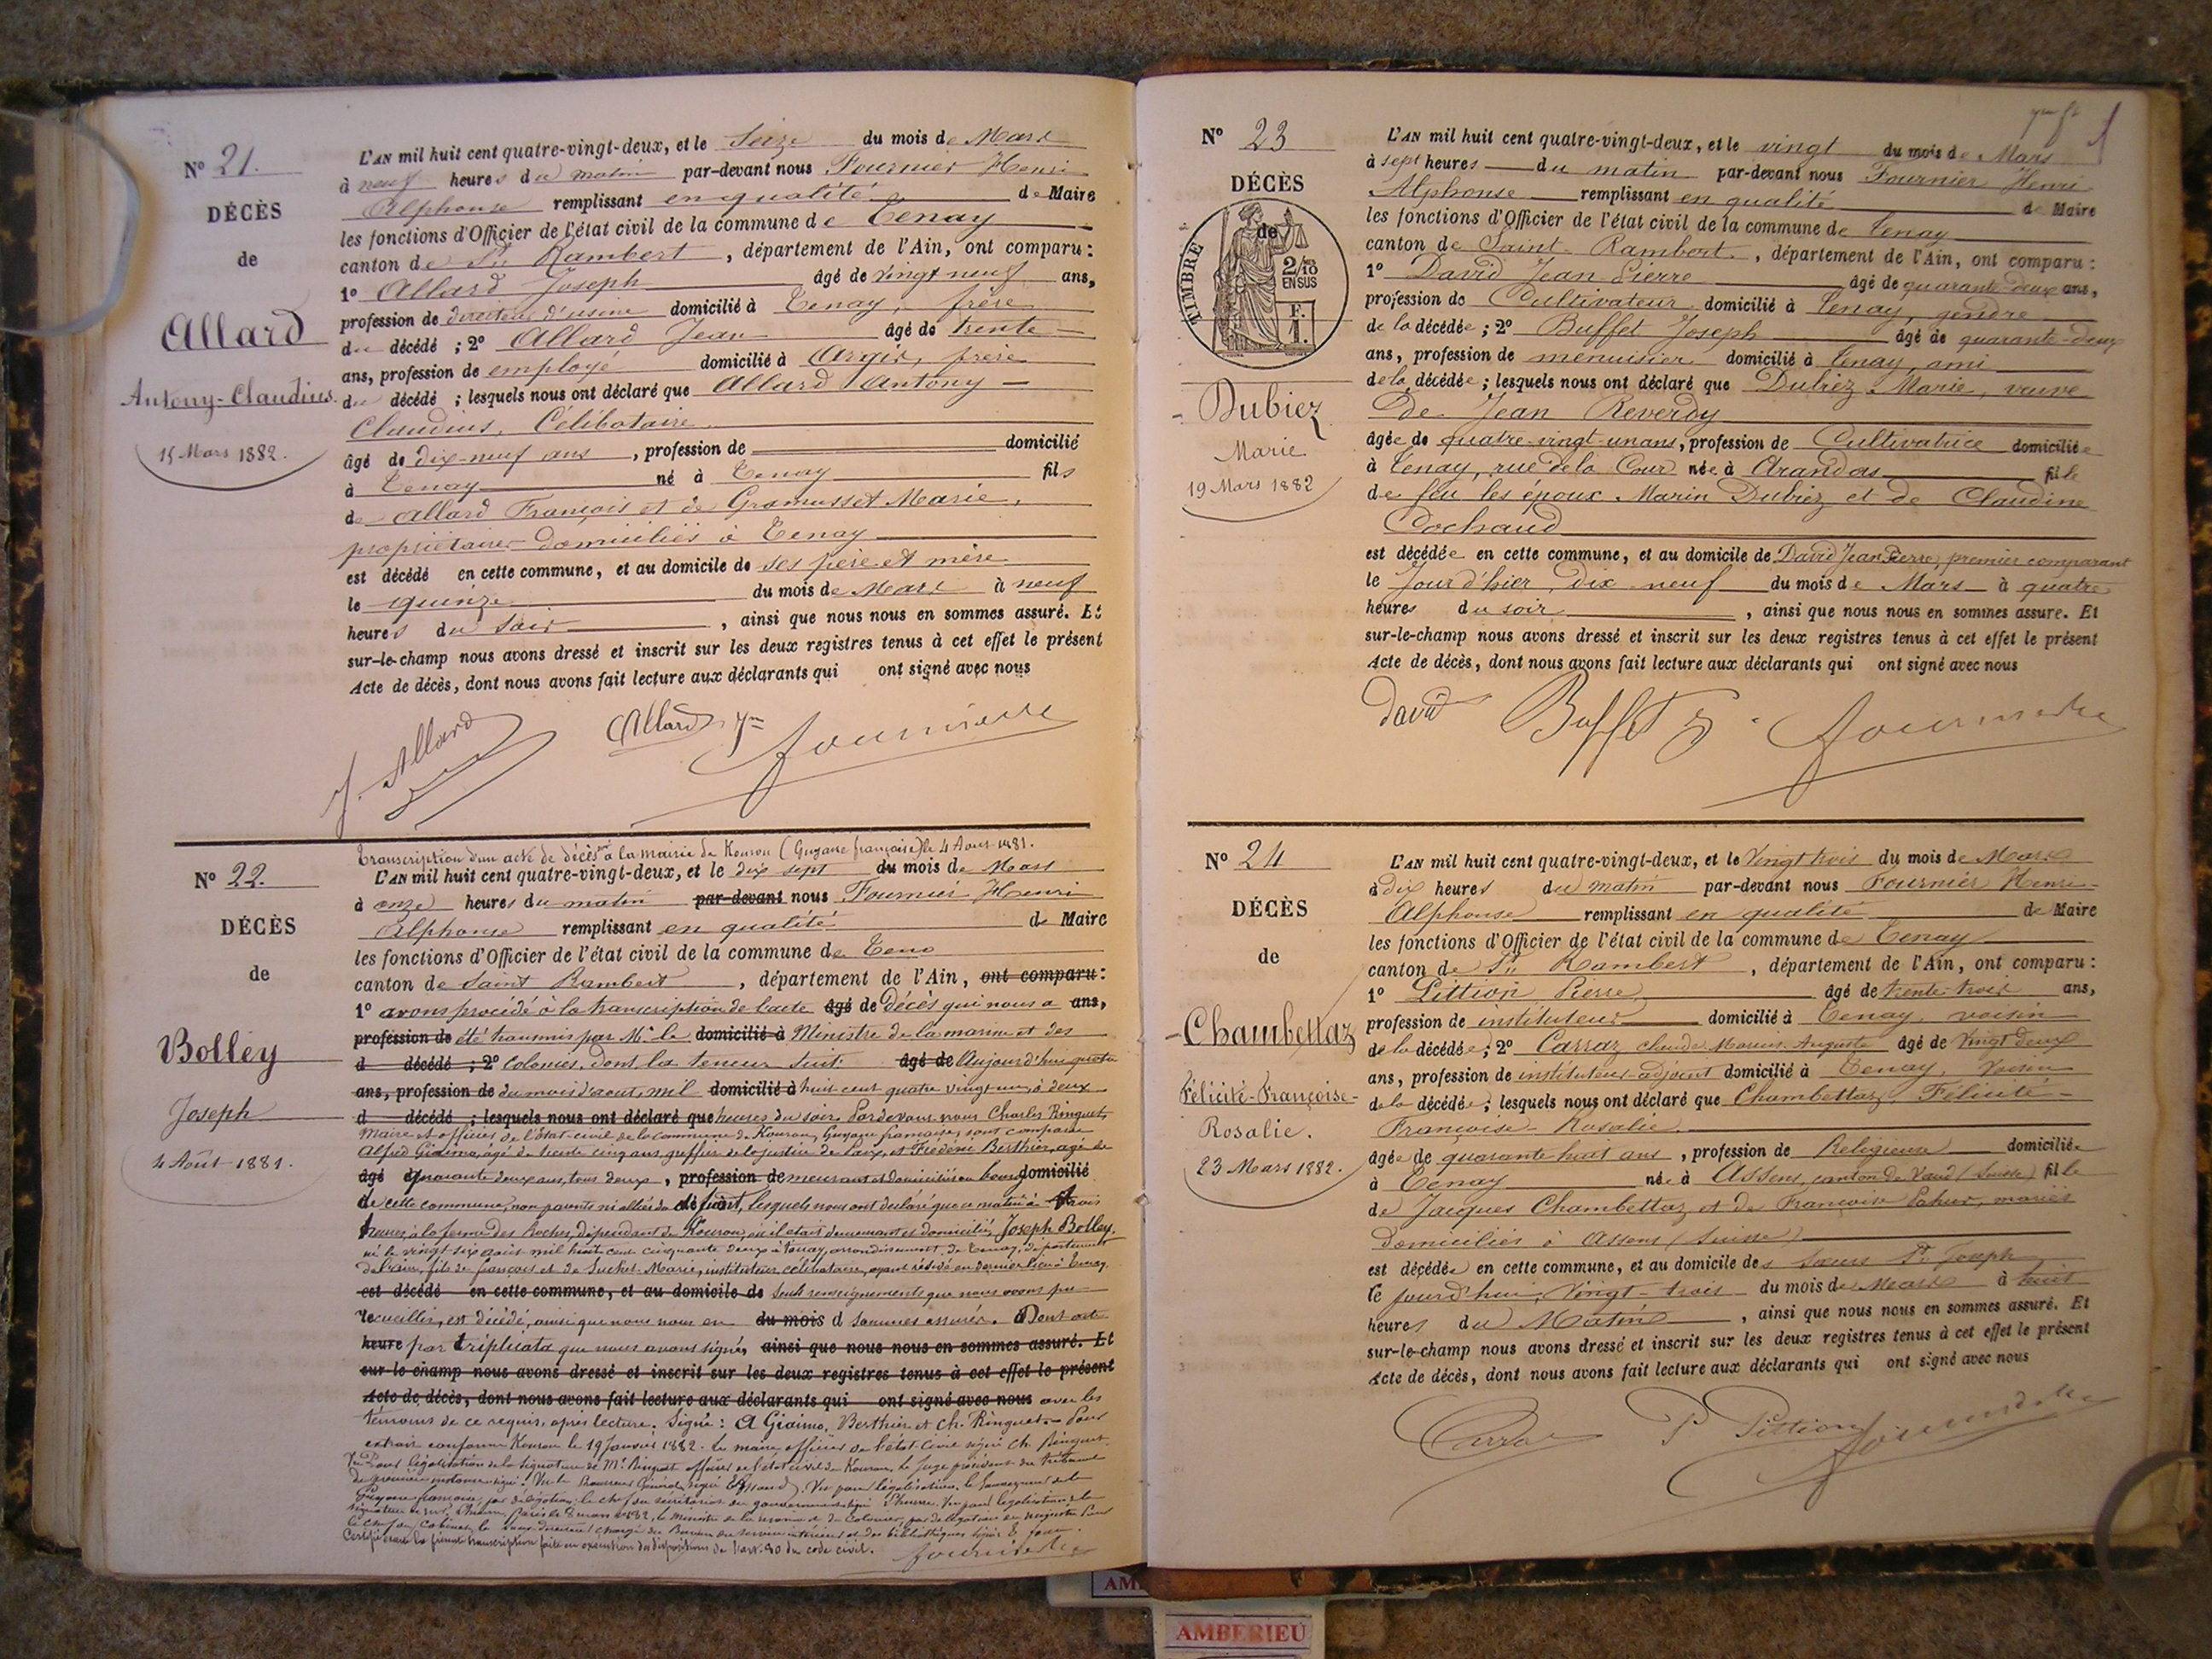 N° 21.
DÉCÈS
de
Allard
Antony-Claudius
15 Mars 1882.
L'AN mil huit cent quatre-vingt-deux, et le Seize du mois de Mars
à neuf heures du matin par-devant nous Fournier Henri
Alphonse remplissant en qualité de Maire
les fonctions d'Officier de l'état civil de la commune de Tenay
canton de St Rambert, département de l'Ain, ont comparu :
1° Allard Joseph âgé de vingt neuf ans,
profession de directeur d'usine domicilié à Tenay, frère
du décédé ; 2° Allard Jean âgé de trente
ans, profession de employé domicilié à Argis, frère
du décédé ; lesquels nous ont déclaré que Allard Antony
Claudius, Célibataire
âgé de dix-neuf ans, profession de domicilié
à Tenay né à Tenay fils
de Allard François et de Gramusset Marie,
propriétaires domiciliés à Tenay
est décédé en cette commune, et au domicile de ses père et mère
le quinze du mois de Mars à neuf
heures du soir, ainsi que nous nous en sommes assuré. Et
sur-le-champ nous avons dressé et inscrit sur les deux registres tenus à cet effet le présent
Acte de décès, dont nous avons fait lecture aux déclarants qui ont signé avec nous
J. Allard Allard Jn
N° 22.
DÉCÈS
de
Bolley
Joseph
4 Août 1881.
Transcription d'un acte de décès à la mairie de Kourou (Guyane française) le 4 Aout 1881.
L'AN mil huit cent quatre-vingt-deux, et le dix sept du mois de Mars
à onze heures du matin par-devant nous Fournier Henri
Alphonse remplissant en qualité de Maire
les fonctions d'Officier de l'état civil de la commune de Tena
canton de Saint Rambert, département de l'Ain, ont comparu :
1° avons procédé à la transcription de l'acte âgé de décès qui nous a ans,
profession de été transmis par Mr le domicilié à Ministre de la marine et des
d décédé ; 2° Colonies, dont la teneur suit: âgé de Aujourd'hui quatre
ans, profession de du mois d'aout, mil domicilié à huit cent quatre vingt un, à deux
d décédé ; lesquels nous ont déclaré que heures du soir, Pardevant nous Charles Ringuet,
Maire et officier de l'état-civil de la commune de Kourou, Guyane française, sont comparus
Alfred Giaimo, âgé de trente cinq ans, greffier de la justice de Paix, et Frédéric Berthier, agé de
âgé quarante deux ans, tous deux, profession demeurant et domiciliés au bourg domicilié
de cette commune, non parents ni alliés du défunt, lesquels nous ont déclaré que ce matin à trois
heures, à la ferme des Roches, dépendant de Kourou, où il était demeurant et domicilié, Joseph Bolley,
né le vingt-six août mil huit cent cinquante deux à Tenay, arrondissement de Tenay, département
de l'ain, fils de françois et de Suchet Marie, instituteur, célibataire, ayant résidé en dernier lieu à Tenay,
est décédé en cette commune, et au domicile de seuls renseignements que nous avons pu
recueillir, est décédé, ainsi que nous nous en du mois d sommes assurés. à Dont acte
heure par triplicata que nous avons signé, ainsi que nous nous en sommes assuré. Et
sur-le-champ nous avons dressé et inscrit sur les deux registres tenus à cet effet le présent
Acte de décès, dont nous avons fait lecture aux déclarants qui ont signé avec nous avec les
témoins de ce requis, après lecture. Signé: A Giaimo, Berthier et Ch. Ringuet. Pour
extrait conforme Kourou le 19 Janvier 1882. Le maire officier de l'état civil signé Ch. Ringuet.
Vu pour légalisation de la signature de Mr Ringuet officier de l'état civil de Kourou, Le Juge président du tribunal
de première instance signé: Vu le Procureur Général, signé. Vu pour légalisation, le Gouverneur de la
Guyane française, par délégation: le chef du secrétariat du gouvernement signé. Vu pour légalisation de la
signature de Mr, Paris le 8 mars 1882, le Ministre de la marine et des Colonies, par délégation du ministre Pour
le chef du Cabinet, le Sous-Directeur chargé du Bureau du service intérieur et des bibliothèques signé
Certifié exacte la présente transcription faite en exécution des dispositions de l'art. 80 du code civil.
N° 23
DÉCÈS
de
TIMBRE
2/10
EN SUS
F.
1.
Dubiez
Marie
19 Mars 1882
L'AN mil huit cent quatre-vingt-deux, et le vingt du mois de Mars
à sept heures du matin par-devant nous Fournier Henri
Alphonse remplissant en qualité de Maire
les fonctions d'Officier de l'état civil de la commune de Tenay
canton de Saint-Rambert, département de l'Ain, ont comparu :
1° David Jean Pierre âgé de quarante deux ans,
profession de Cultivateur domicilié à Tenay, gendre
de la décédée ; 2° Buffet Joseph âgé de quarante-deux
ans, profession de menuisier domicilié à Tenay, ami
de la décédée ; lesquels nous ont déclaré que Dubiez Marie, veuve
de Jean Reverdy
âgée de quatre-vingt-un ans, profession de Cultivatrice domiciliée
à Tenay, rue de la Cour née à Arandas fille
de feu les époux Marin Dubiez et de Claudine
Cochaud
est décédée en cette commune, et au domicile de David Jean Pierre, premier comparant
le Jour d'hier, Dix neuf du mois de Mars à quatre
heures du soir, ainsi que nous nous en sommes assuré. Et
sur-le-champ nous avons dressé et inscrit sur les deux registres tenus à cet effet le présent
Acte de décès, dont nous avons fait lecture aux déclarants qui ont signé avec nous
David Buffet
N° 24
DÉCÈS
de
Chambettaz
Félicité-Françoise-
Rosalie.
23 Mars 1882.
L'AN mil huit cent quatre-vingt-deux, et le Vingt trois du mois de Mars
à dix heures du matin par-devant nous Fournier Henri
Alphonse remplissant en qualité de Maire
les fonctions d'Officier de l'état civil de la commune de Tenay
canton de St Rambert, département de l'Ain, ont comparu :
1° Pittion Pierre âgé de trente-trois ans,
profession de instituteur domicilié à Tenay, voisin
de la décédée ; 2° Carraz Claude Marius Auguste âgé de Vingt deux
ans, profession de instituteur-adjoint domicilié à Tenay, Voisin
de la décédée ; lesquels nous ont déclaré que Chambettaz, Félicité
Françoise-Rosalie
âgée de quarante huit ans, profession de Religieuse domiciliée
à Tenay née à Assens, canton de Vaud (Suisse) fille
de Jacques Chambettaz et de Françoise, mariés
domiciliés à Assens (Suisse)
est décédée en cette commune, et au domicile des Sœurs St Joseph
le jourd'hui, Vingt-trois du mois de Mars à huit
heures du Matin, ainsi que nous nous en sommes assuré. Et
sur-le-champ nous avons dressé et inscrit sur les deux registres tenus à cet effet le présent
Acte de décès, dont nous avons fait lecture aux déclarants qui ont signé avec nous
Carraz P Pittion
AMBERIEU